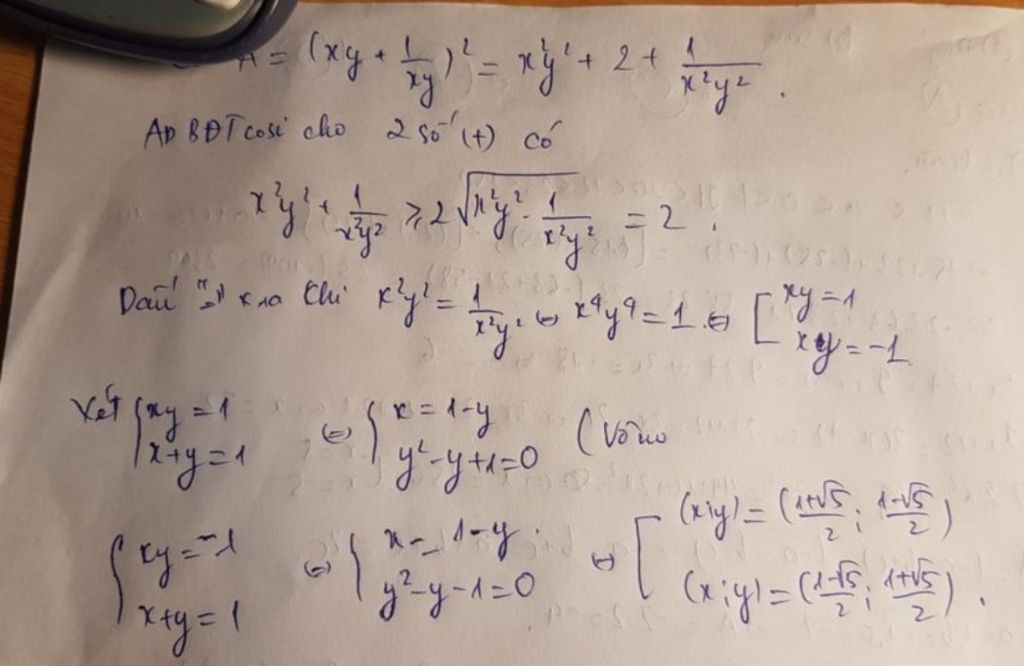 A = (xy + 1/xy)² = x²y² + 2 + 1/x²y² .
AD BĐT cosi cho 2 số (+) có
x²y² + 1/x²y² ⩾ 2√(x²y² · 1/x²y²) = 2 .
Dấu "=" xra khi x²y² = 1/x²y² ⇔ x⁴y⁴ = 1 ⇔ [ xy = 1
xy = -1
Xét { xy = 1 ⇔ { x = 1-y
x+y = 1 y² - y + 1 = 0 ( Vô no
{ xy = -1 ⇔ { x = 1-y . ⇔ [ (x;y) = (1+√5/2 ; 1-√5/2)
x+y = 1 y² - y - 1 = 0 (x;y) = (1-√5/2 ; 1+√5/2) .